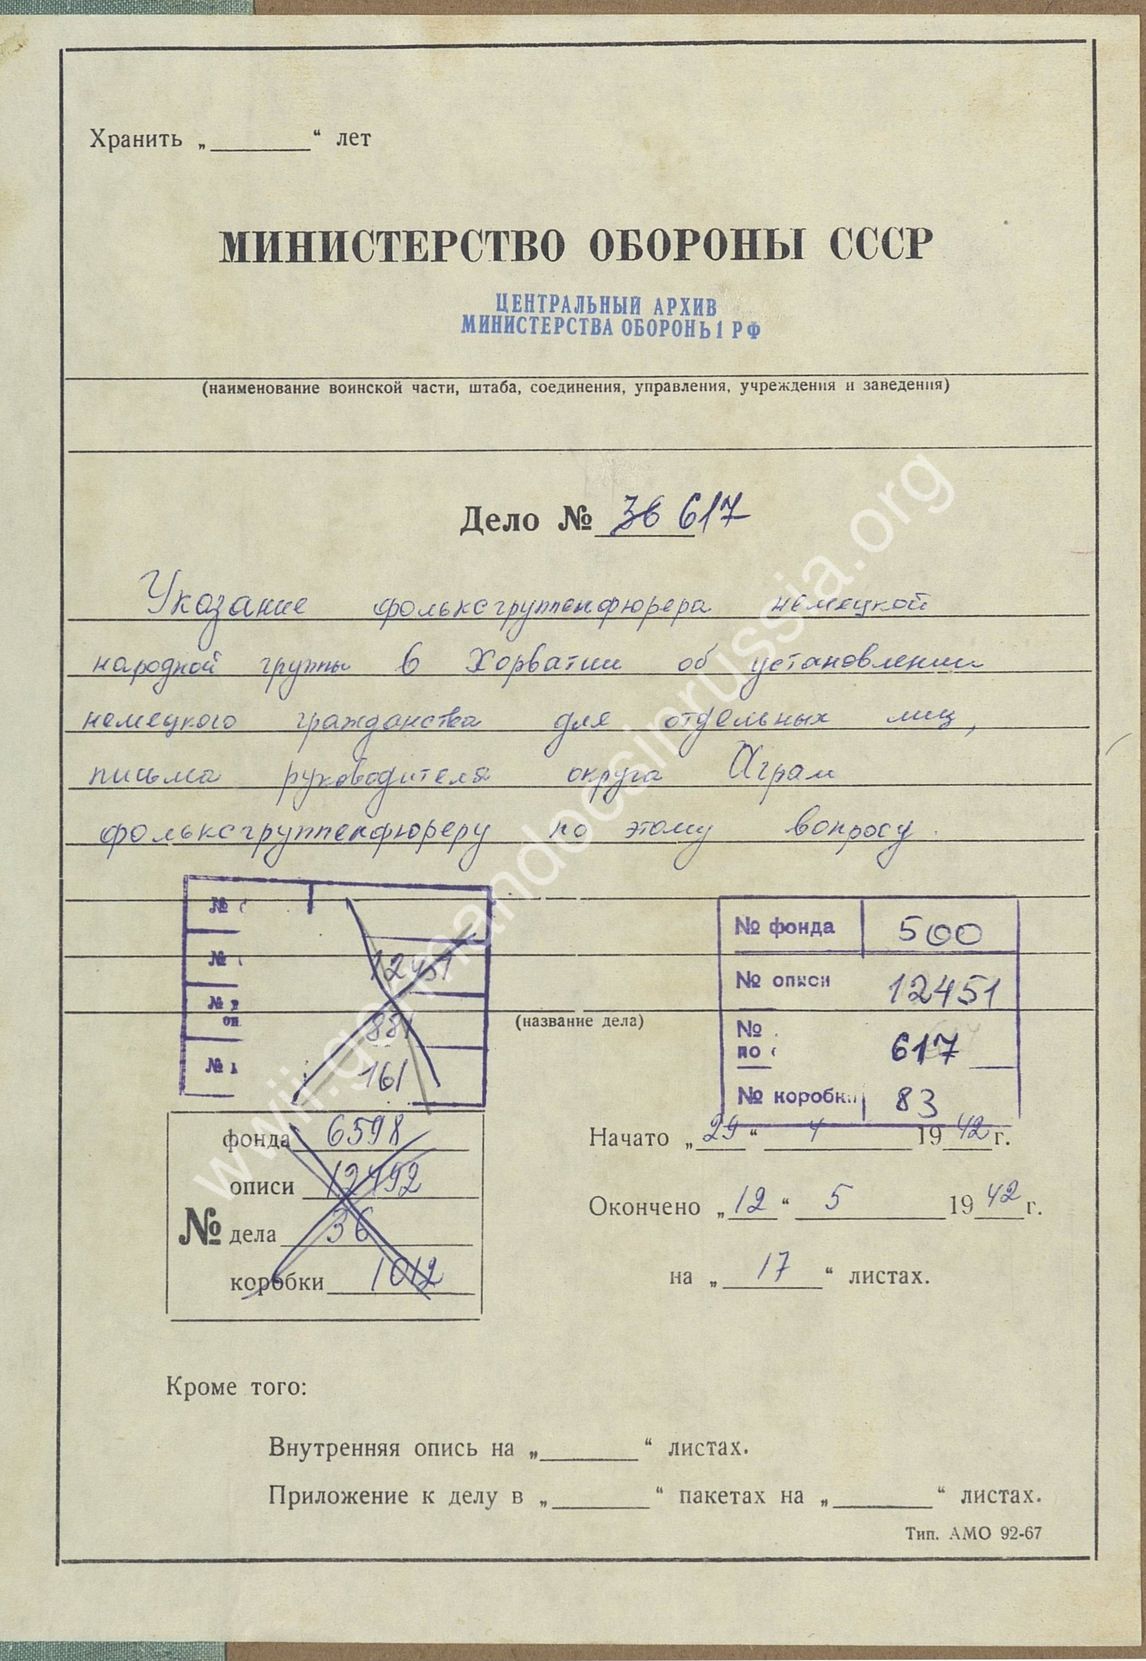 Хранить „ “ лет
МИНИСТЕРСТВО ОБОРОНЫ СССР
ЦЕНТРАЛЬНЫЙ АРХИВ
МИНИСТЕРСТВА ОБОРОНЫ РФ
(наименование воинской части, штаба, соединения, управления, учреждения и заведения)
Дело № 36 617
Указание фольксгруппенфюрера немецкой
народной группы в Хорватии об установлении
немецкого гражданства для отдельных лиц,
письма руководителя округа Аграм
фольксгруппенфюреру по этому вопросу.
№
№ 12451
№ 881
оп
№ 161
№ фонда 500
№ описи 12451
№
по 617
№ коробки 83
(название дела)
фонда 6598
описи 12492
№ дела 36
коробки 1012
Начато „29“ 4 1942 г.
Окончено „12“ 5 1942 г.
на „17“ листах.
Кроме того:
Внутренняя опись на „ “ листах.
Приложение к делу в „ “ пакетах на „ “ листах.
Тип. АМО 92-67
wwii.germandocsinrussia.org